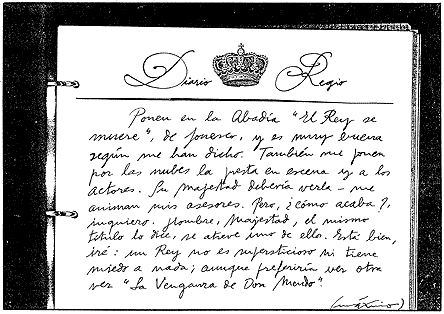 Diario Regio
Ponen en la Abadía "El Rey se
muere", de Ionesco, y es muy buena
según me han dicho. También me ponen
por las nubes la puesta en escena y a los
actores. Su majestad debería verla - me
animan mis asesores. Pero, ¿cómo acaba?,
inquiero. Hombre, Majestad, el mismo
título lo dice, se atreve uno de ellos. Está bien,
iré: un Rey no es supersticioso ni tiene
miedo a nada; aunque preferiría ver otra
vez "La Venganza de Don Mendo".
(máximo)